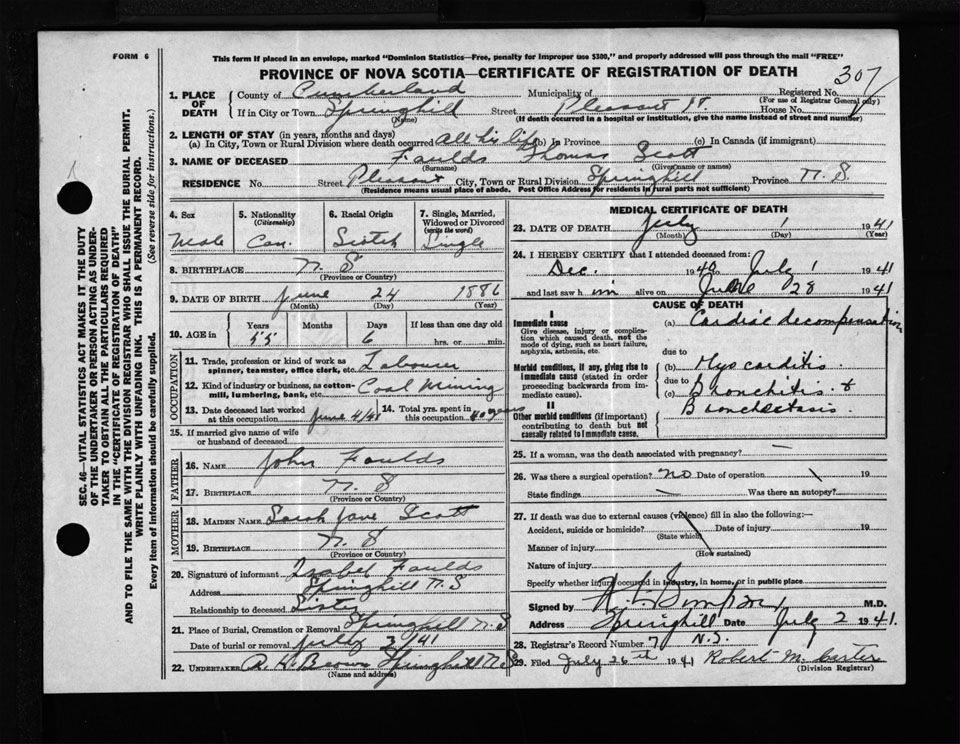 FORM 6
This form if placed in an envelope, marked "Dominion Statistics—Free, penalty for improper use $300," and properly addressed will pass through the mail "FREE"
PROVINCE OF NOVA SCOTIA—CERTIFICATE OF REGISTRATION OF DEATH
307
1. PLACE OF DEATH
County of Cumberland Municipality of Registered No.
(For use of Registrar General only)
If in City or Town Springhill Street Pleasant St. House No.
(Name) (If death occurred in a hospital or institution, give the name instead of street and number)
2. LENGTH OF STAY (in years, months and days)
(a) In City, Town or Rural Division where death occurred all his life (b) In Province (c) In Canada (if immigrant)
3. NAME OF DECEASED Faulds Thomas Scott
(Surname) (Given name or names)
RESIDENCE No. Street Pleasant City, Town or Rural Division Springhill Province N. S
(Residence means usual place of abode. Post Office Address for residents in rural parts not sufficient)
4. Sex Male
5. Nationality (Citizenship) Can.
6. Racial Origin Scotch
7. Single, Married, Widowed or Divorced (write the word) Single
8. BIRTHPLACE N. S
(Province or Country)
9. DATE OF BIRTH June 24 1886
(Month) (Day) (Year)
10. AGE in Years Months Days If less than one day old
55 6 hrs. or min.
OCCUPATION
11. Trade, profession or kind of work as spinner, teamster, office clerk, etc. Labourer
12. Kind of industry or business, as cotton-mill, lumbering, bank, etc. Coal Mining
13. Date deceased last worked at this occupation June 4/41 14. Total yrs. spent in this occupation 40 years
15. If married give name of wife or husband of deceased
FATHER
16. NAME John Faulds
17. BIRTHPLACE N. S
(Province or Country)
MOTHER
18. MAIDEN NAME Sarah Jane Scott
19. BIRTHPLACE N. S
(Province or Country)
20. Signature of informant Isabel Faulds
Address Springhill N. S
Relationship to deceased Sister
21. Place of Burial, Cremation or Removal Springhill N. S
Date of burial or removal July 3/41
22. UNDERTAKER A. H. Brown Springhill N S
(Name and address)
MEDICAL CERTIFICATE OF DEATH
23. DATE OF DEATH July 1 1941
(Month) (Day) (Year)
24. I HEREBY CERTIFY that I attended deceased from:
Dec. 1940 to July 1 1941
and last saw him alive on June 28 1941
CAUSE OF DEATH
I
Immediate cause
Give disease, injury or complication which caused death, not the mode of dying, such as heart failure, asphyxia, asthenia, etc.
(a) Cardiac decompensation
due to
Morbid conditions, if any, giving rise to immediate cause (stated in order proceeding backwards from immediate cause).
(b) Myocarditis.
due to
(c) Bronchitis. &
Bronchectasis.
II
Other morbid conditions (if important) contributing to death but not causally related to immediate cause.
25. If a woman, was the death associated with pregnancy?
26. Was there a surgical operation? no Date of operation 19
State findings Was there an autopsy?
27. If death was due to external causes (violence) fill in also the following:—
Accident, suicide or homicide? Date of injury 19
(State which)
Manner of injury
(How sustained)
Nature of injury
Specify whether injury occurred in industry, in home, or in public place
Signed by Simpson M.D.
Address Springhill Date July 2 1941.
N.S.
28. Registrar's Record Number 7
29. Filed July 26th 1941 Robert M. Carter
(Division Registrar)
SEC. 46—VITAL STATISTICS ACT MAKES IT THE DUTY
OF THE UNDERTAKER OR PERSON ACTING AS UNDERTAKER TO OBTAIN ALL THE PARTICULARS REQUIRED
IN THE "CERTIFICATE OF REGISTRATION OF DEATH"
AND TO FILE THE SAME WITH THE DIVISION REGISTRAR WHO SHALL ISSUE THE BURIAL PERMIT.
WRITE PLAINLY WITH UNFADING INK. THIS IS A PERMANENT RECORD.
Every item of information should be carefully supplied. (See reverse side for instructions.)